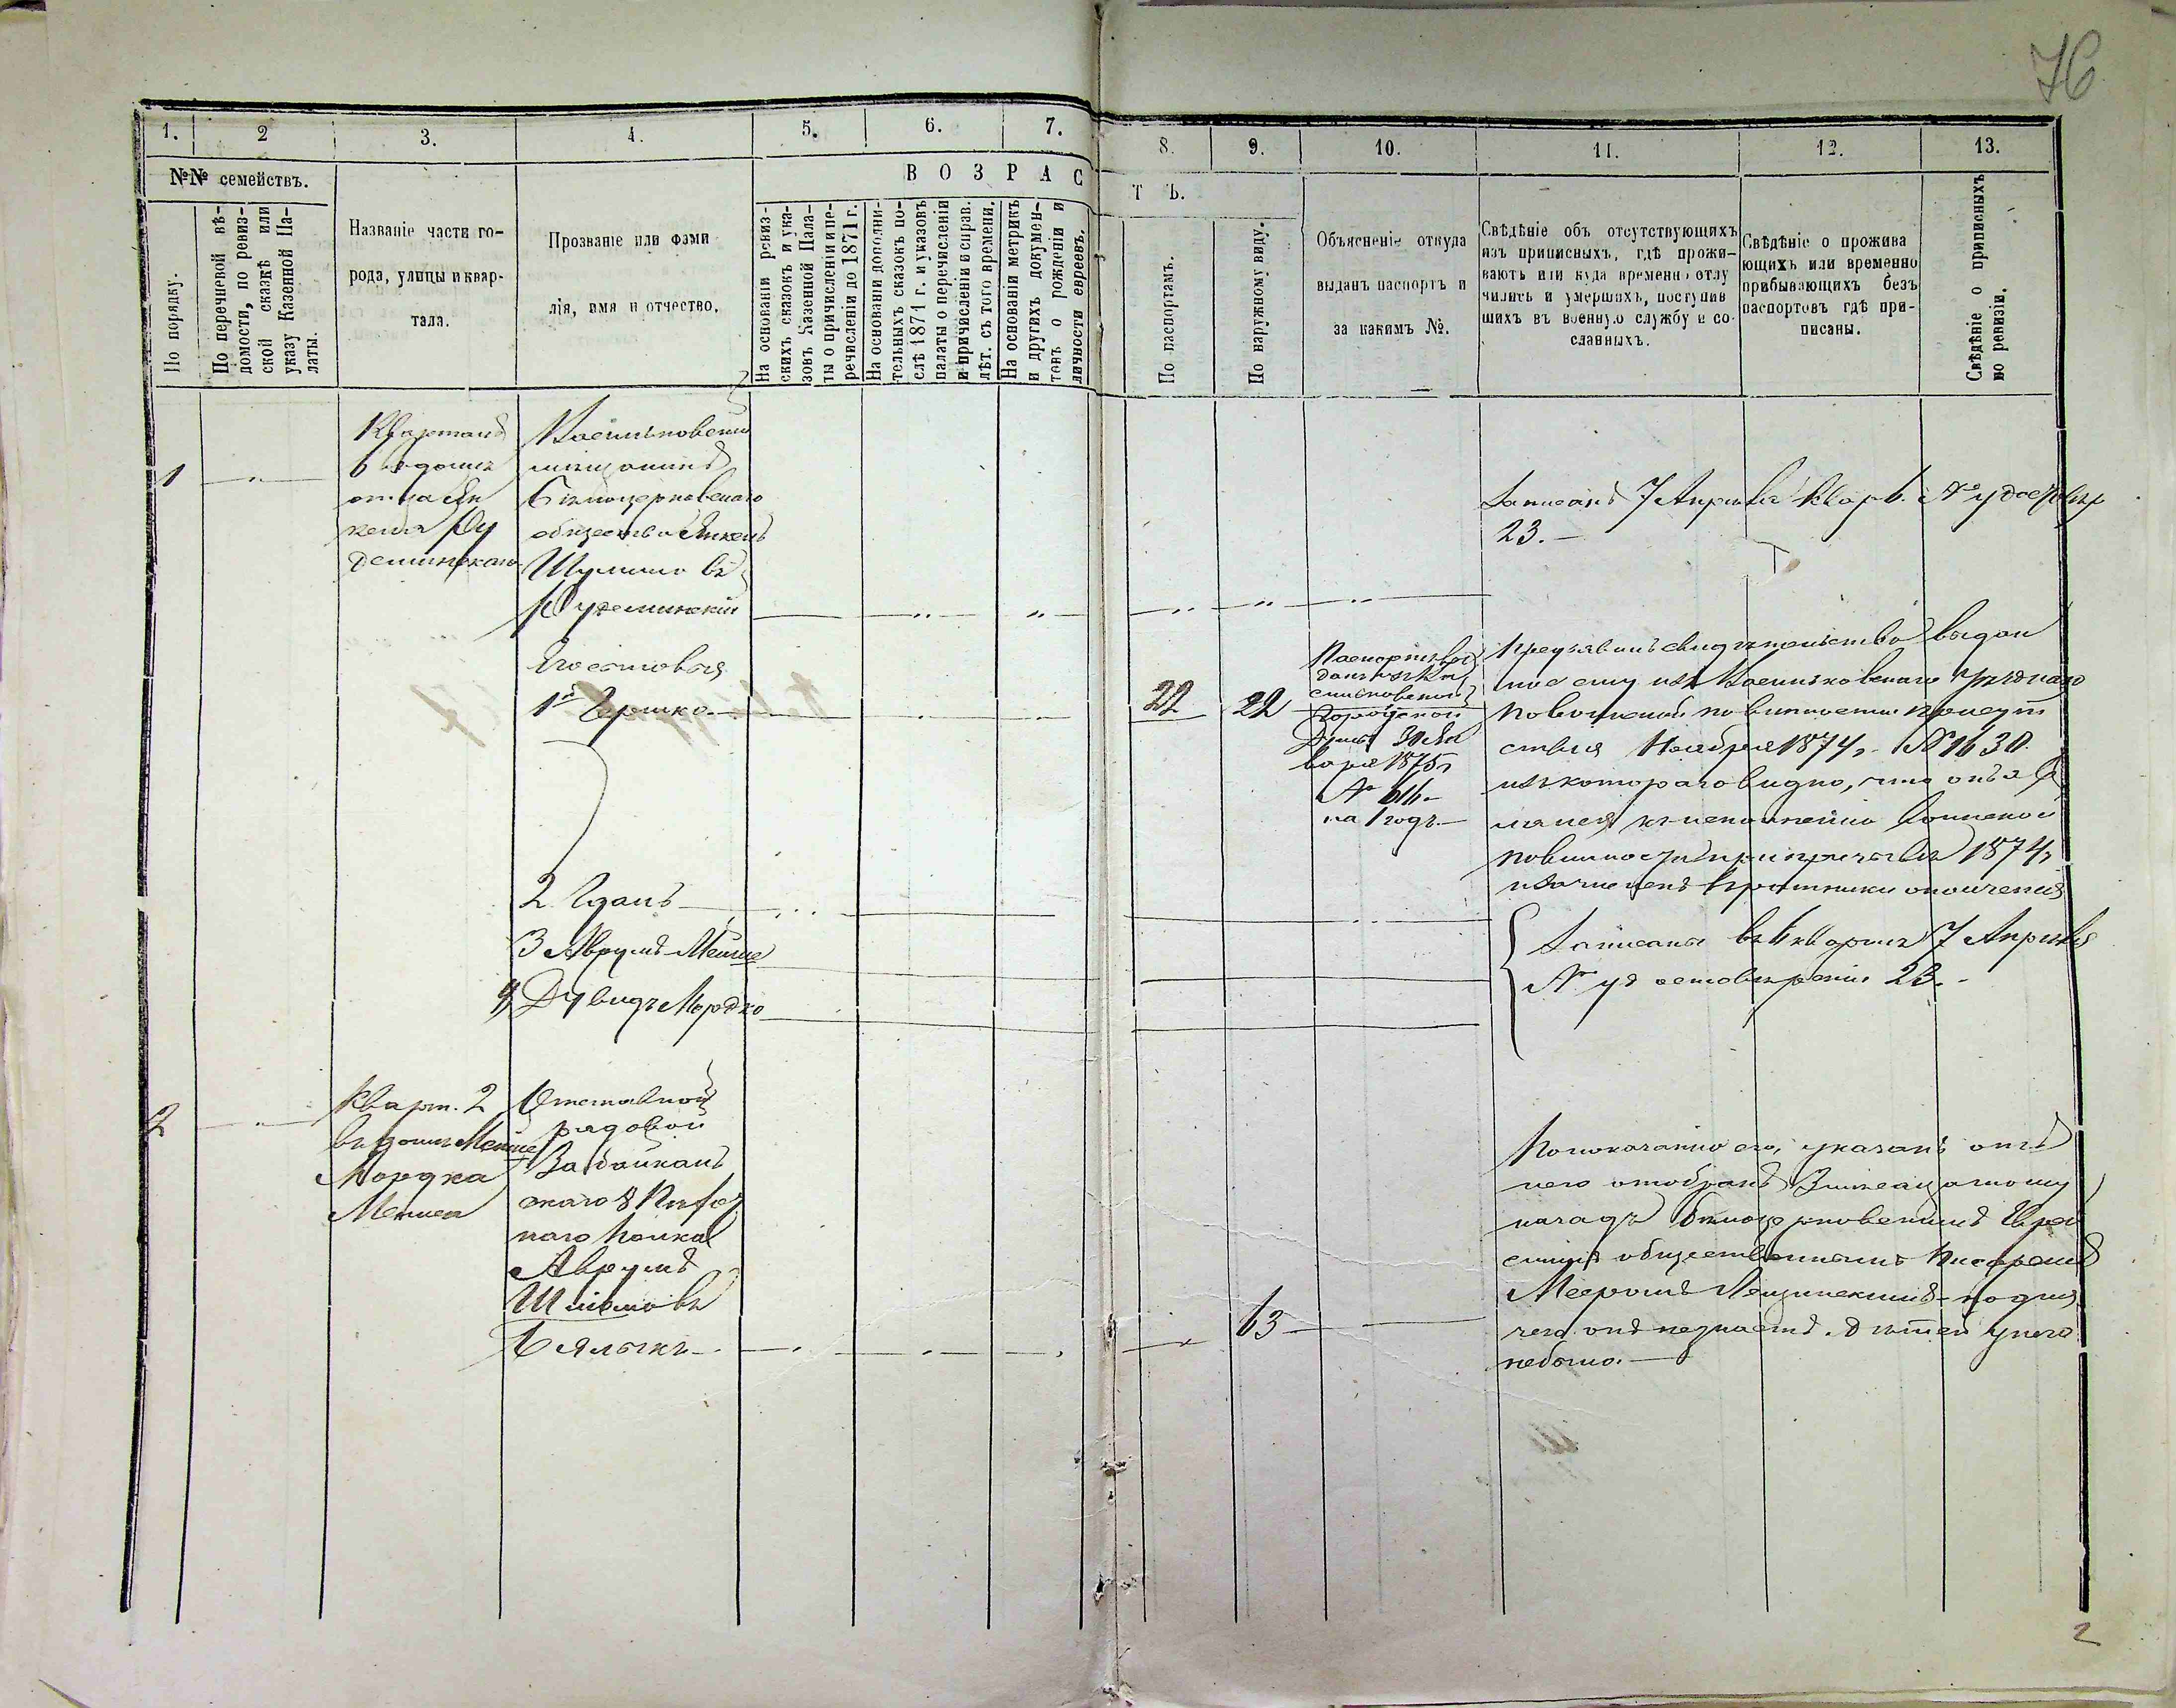 76
1. 2 3. 4. 5. 6. 7. 8. 9. 10. 11. 12. 13.
№№ семействъ.
В О З Р А С Т Ъ.
По порядку.
По перечневой вѣ-
домости, по ревиз-
ской сказкѣ или
указу Казенной Па-
латы.
Названіе части го-
рода, улицы и квар-
тала.
Прозваніе или фами
лія, имя и отчество.
На основаніи ревиз-
скихъ сказокъ и ука-
зовъ Казенной Пала-
ты о причисленіи и пе-
речисленіи до 1871 г.
На основаніи дополни-
тельныхъ сказокъ по-
слѣ 1871 г. и указовъ
палаты о перечисленіи
и причисленіи и справ.
лѣт. съ того времени.
На основаніи метрикъ
и другихъ докумен-
товъ о рожденіи и
личности евреевъ.
По паспортамъ.
По наружному виду.
Объясненіе откуда
выданъ паспортъ и
за какимъ №.
Свѣдѣніе объ отсутствующихъ
изъ приписныхъ, гдѣ прожи-
ваютъ или куда временно отлу
чились и умершихъ, поступив
шихъ въ военную службу и со-
сланныхъ.
Свѣдѣніе о прожива
ющихъ или временно
прибывающихъ безъ
паспортовъ гдѣ при-
писаны.
Свѣдѣніе о приписныхъ
по ревизіи.
1
Кварталъ
6 в домѣ
отца Ян
келя Ру
деминскаго
Васильковскій
мѣщанинъ
Бѣлоцерковскаго
общества Янкель
Шулимовъ
Рудеминскій
Записанъ 7 Апрѣля Квар 6. № удостовѣр
23.—
Его сыновья
1й Гершко
22 22
Паспортъ вы
данъ изъ Ва
сильковской
Городской
Думы 30 Ян
варя 1875 г
№ 616
на 1 годъ.—
Предъявилъ свидѣтельство выдан
ное ему изъ Васильковскаго Уѣзднаго
по воинской повинности присут
ствія Ноября 1874 г. № 1630
изъ котораго видно, что онъ яв
лялся къ исполненію воинской
повинности при призывѣ 1874 г
и зачисленъ въ ратники ополченія
2
3 Аврумъ Мойше
4 Дувидъ Мордко
Записаны въ 6 кварталѣ 7 Апрѣля
№ удостовѣренія 23.—
2
Кварт. 2
въ домѣ
Мордка
Отставной
рядовой
Забайкаль
скаго 8 Пѣхот
наго полка
Аврумъ
Шліомовъ
Бялыкъ
63
По показанію его, указанъ отъ
него отобранъ
назадъ Бѣлоцерковскимъ Еврей
скимъ общественнымъ писаремъ
Мееромъ — а для
чего онъ не знаетъ. Дѣтей у него
не было.—
2